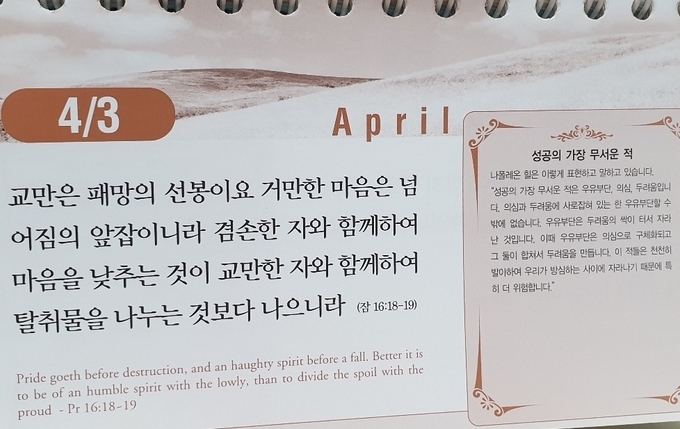 4/3
April
교만은 패망의 선봉이요 거만한 마음은 넘
어짐의 앞잡이니라 겸손한 자와 함께하여
마음을 낮추는 것이 교만한 자와 함께하여
탈취물을 나누는 것보다 나으니라 (잠 16:18-19)
Pride goeth before destruction, and an haughty spirit before a fall. Better it is
to be of an humble spirit with the lowly, than to divide the spoil with the
proud - Pr 16:18-19
성공의 가장 무서운 적
나폴레온 힐은 이렇게 표현하고 말하고 있습니다.
"성공의 가장 무서운 적은 우유부단, 의심, 두려움입니
다. 의심과 두려움에 사로잡혀 있는 한 우유부단할 수
밖에 없습니다. 우유부단은 두려움의 싹이 터서 자라
난 것입니다. 이때 우유부단은 의심으로 구체화되고
그 둘이 합쳐서 두려움을 만듭니다. 이 적들은 천천히
발아하여 우리가 방심하는 사이에 자라나기 때문에 특
히 더 위험합니다."